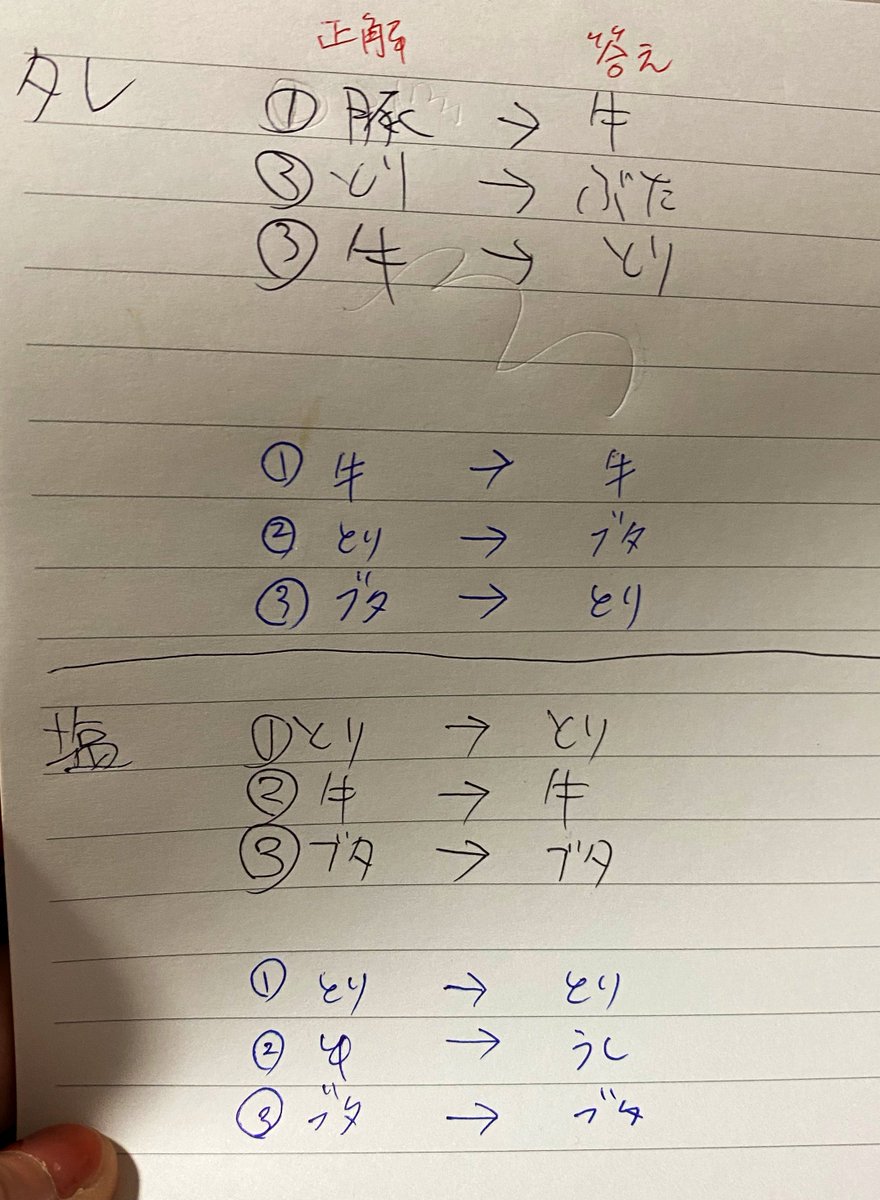 正解 答え
タレ ① 豚 → 牛
③ とり → ぶた
③ 牛 → とり
① 牛 → 牛
② とり → ブタ
③ ブタ → とり
塩 ① とり → とり
② 牛 → 牛
③ ブタ → ブタ
① とり → とり
② → うし
③ ブタ → ブタ